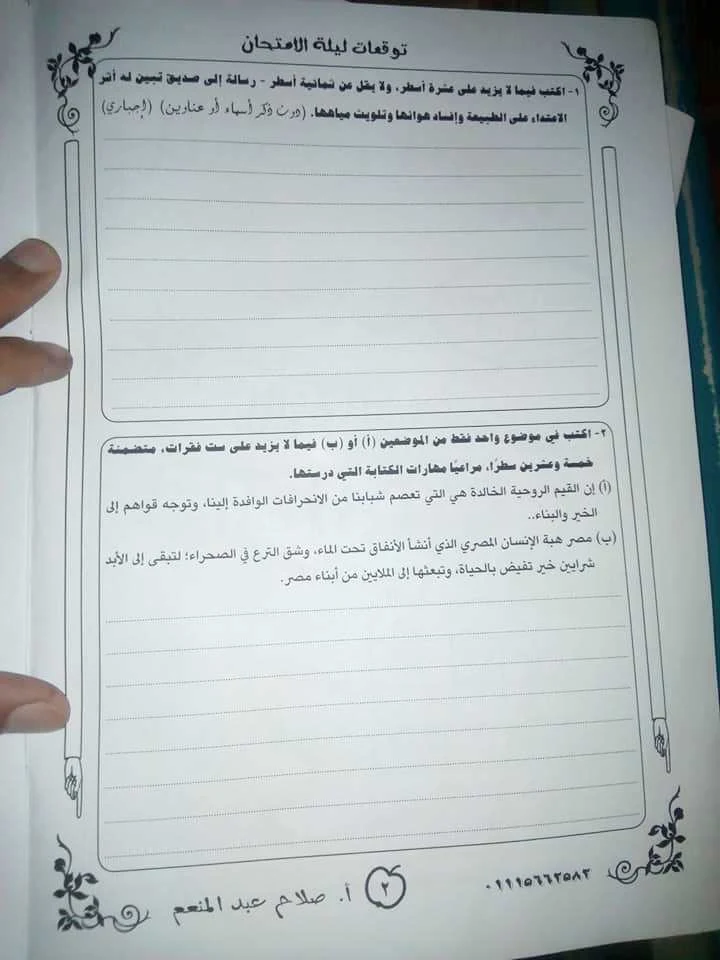 توقعات ليلة الامتحان
١- اكتب فيما لا يزيد على عشرة أسطر، ولا يقل عن ثمانية أسطر - رسالة إلى صديق تبين له أثر
الاعتداء على الطبيعة وإفساد هوائها وتلويث مياهها. (دون ذكر أسماء أو عناوين) (إجباري)
٢- اكتب في موضوع واحد فقط من الموضعين (أ) أو (ب) فيما لا يزيد على ست فقرات، متضمنة
خمسة وعشرين سطرًا، مراعيًا مهارات الكتابة التي درستها.
(أ) إن القيم الروحية الخالدة هي التي تعصم شبابنا من الانحرافات الوافدة إلينا، وتوجه قواهم إلى
الخير والبناء..
(ب) مصر هبة الإنسان المصري الذي أنشأ الأنفاق تحت الماء، وشق الترع في الصحراء؛ لتبقى إلى الأبد
شرايين خير تفيض بالحياة، وتبعثها إلى الملايين من أبناء مصر.
أ. صلاح عبد المنعم ٢ ٠١١١٥٦٦٢٥٨٢